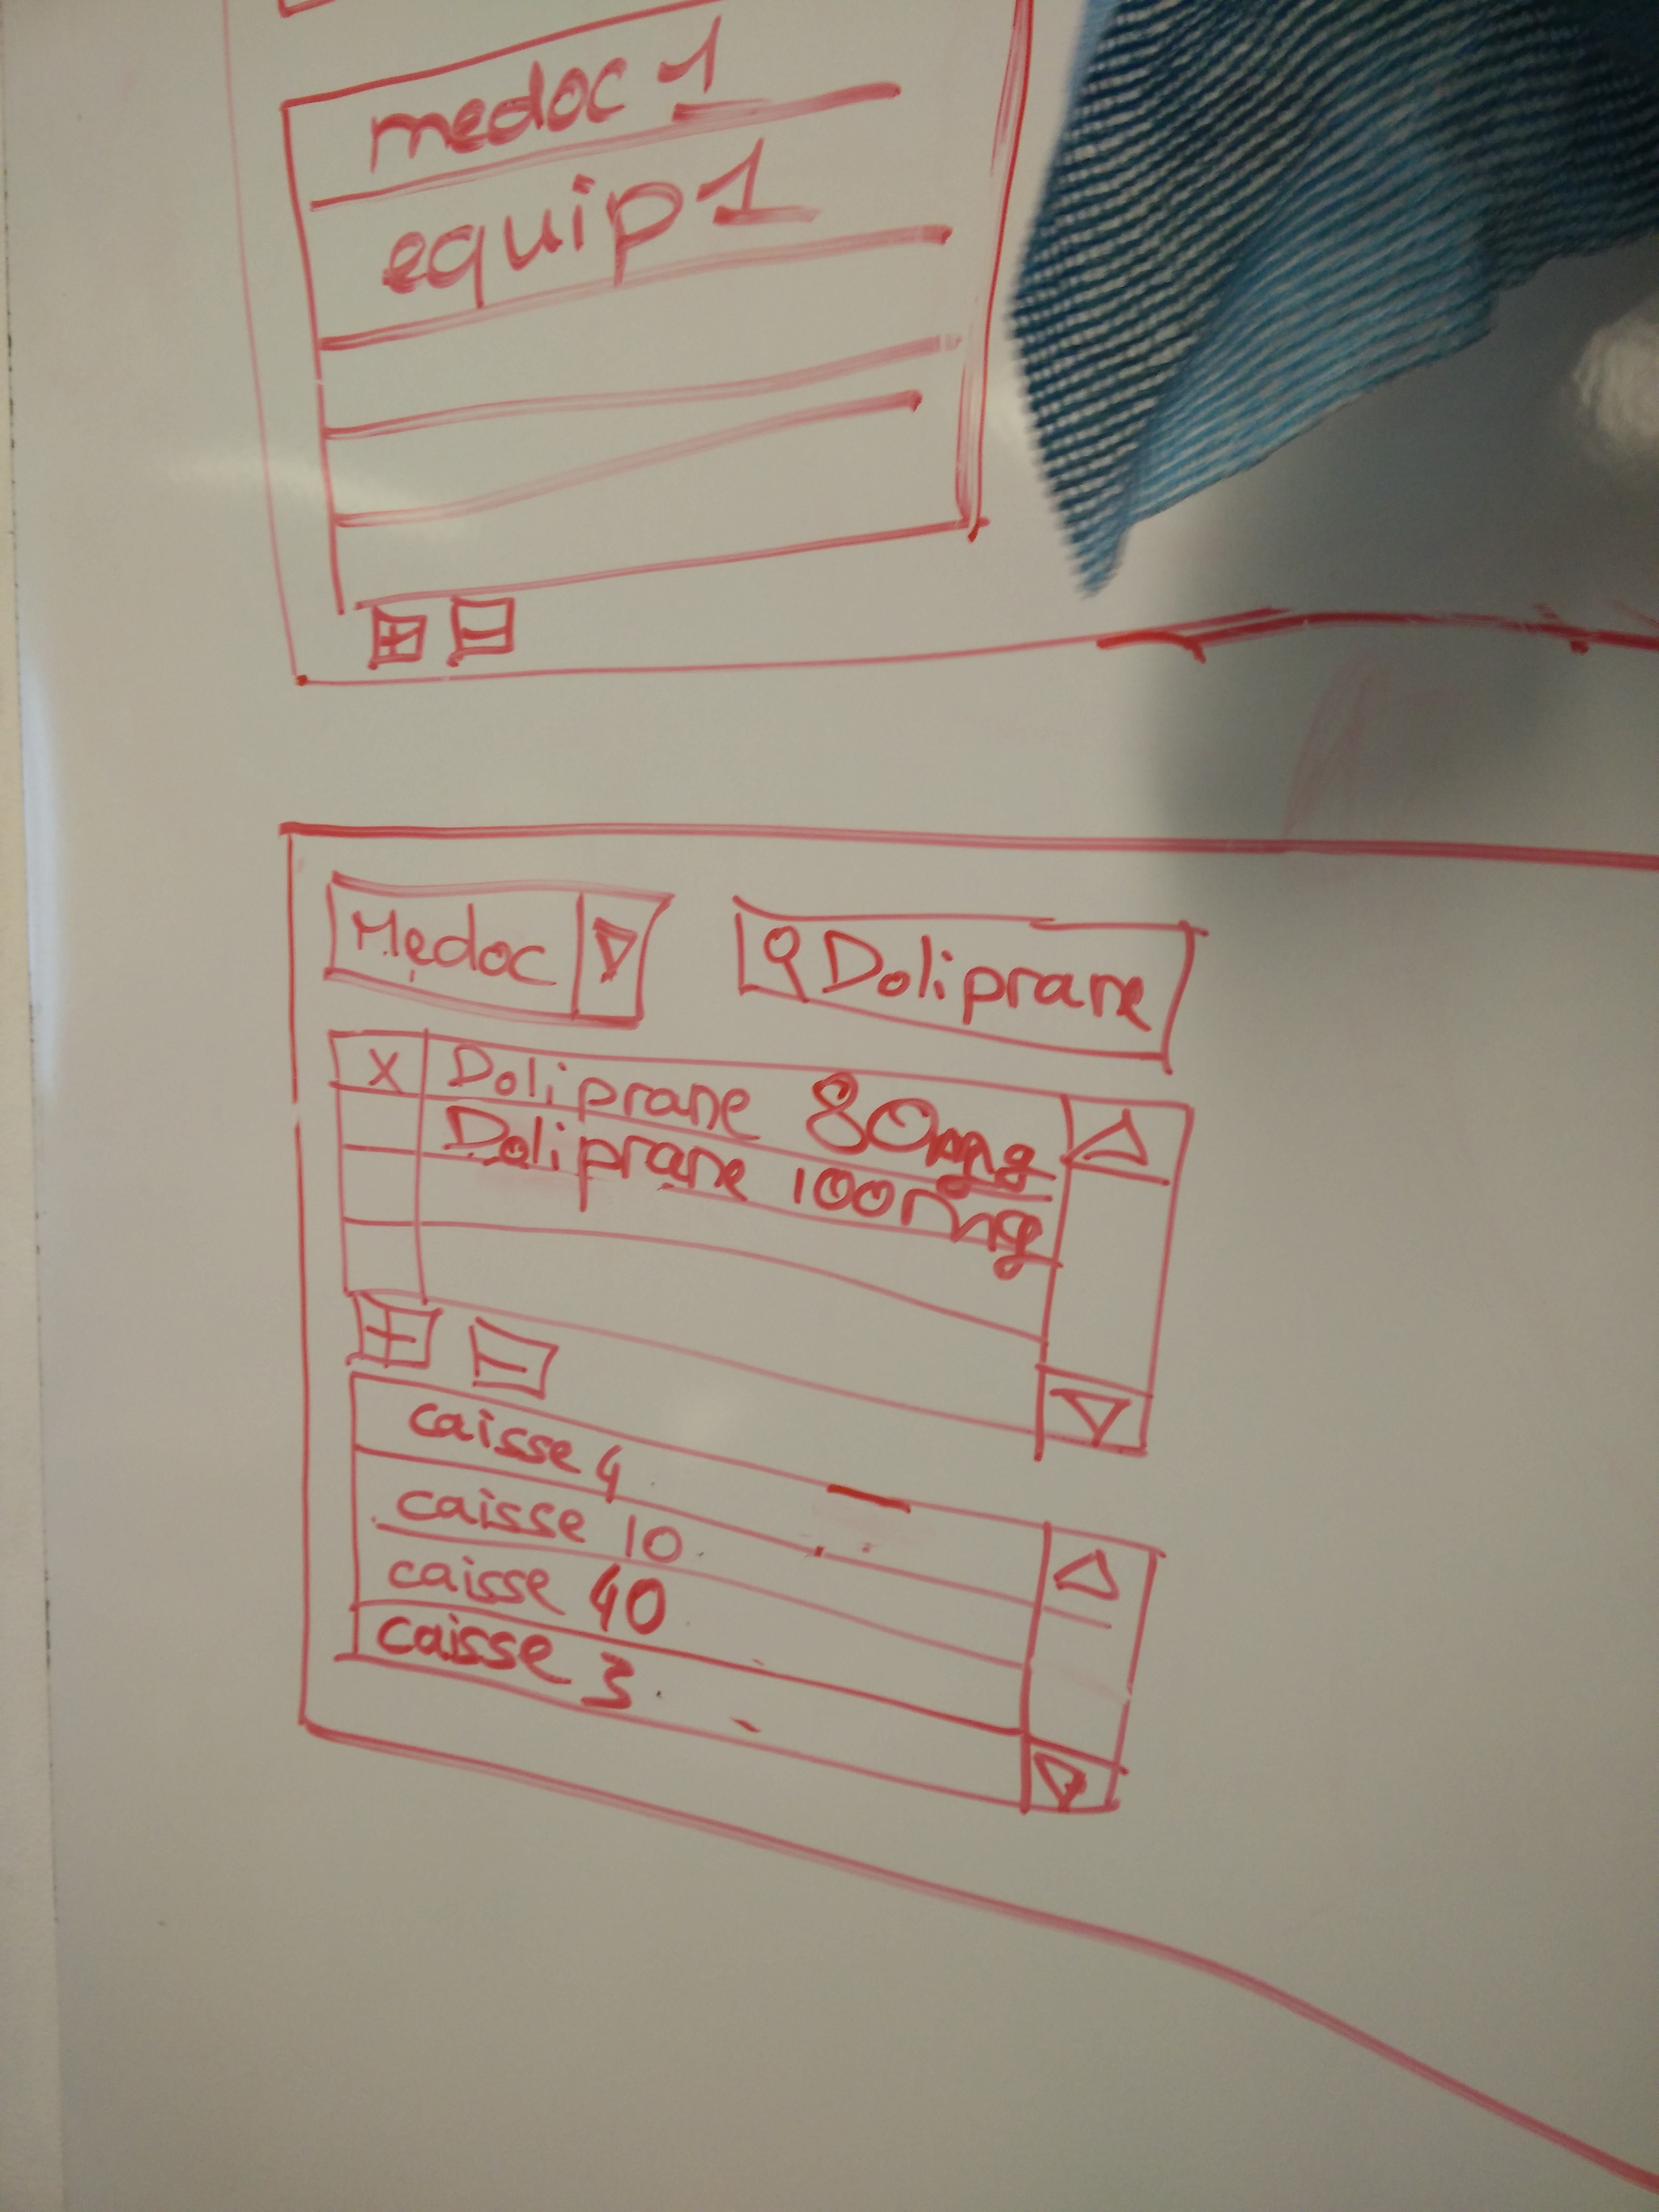 medoc 1
equip 1
+ -
Medoc
Doliprane
X Doliprane 80mg
Doliprane 100mg
+ -
caisse 4
caisse 10
caisse 40
caisse 3